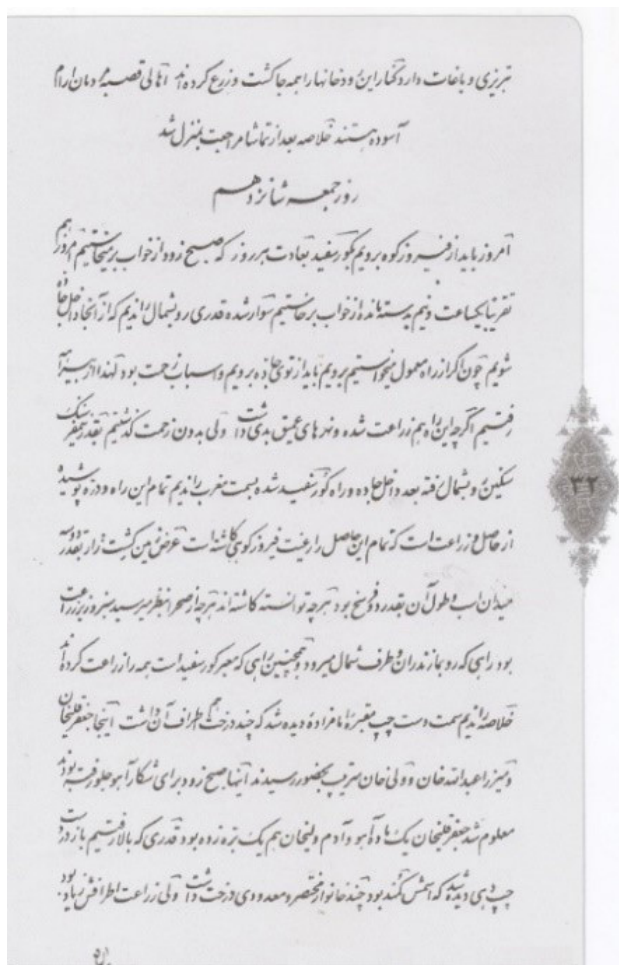 تبریزی و باغات دارد کنار این رودخانها را همه جا کشت و زرع کرده‌اند اهالی قصبه مردمان آرام
آسوده هستند خلاصه بعد از تماشا مراجعت بمنزل شد
روز جمعه شانزدهم
امروز باید از فیروزکوه برویم بگور سفید بعادت هر روز که صبح زود از خواب برمیخاستیم امروز هم
تقریبا یکساعت و نیم بدسته مانده از خواب برخاستیم سوار شده قدری رو بشمال راندیم که از آنجا داخل جاده
شویم چون اگر از راه معمول میخواستیم برویم باید از توی جاده برویم و اسباب زحمت بود لهذا از بیراهه
رفتیم اگرچه این راه هم زراعت شده و نهرهای عمیق بدی داشت ولی بدون زحمت گذشتیم بقدر نیمفرسنگ
سنگین رو بشمال رفته بعد داخل جاده و راه گور سفید شده بسمت مغرب راندیم تمام این راه و دره پوشیده
از حاصل و زراعت است که تمام این حاصل را رعیت فیروزکوهی کاشته است عرض زمین کشت‌زار بقدر دو سه
میدان اسب و طول آن بقدر دو فرسخ بود هرچه توانسته کاشته‌اند هرچه از صحرا بنظر میرسید سبز و زیر زراعت
بود راهی که رو بمازندران و طرف شمال میرود و همچنین راهی که معبر گور سفید است همه را زراعت کرده‌اند
خلاصه راندیم سمت دست چپ مقبره امامزاده دیده شد که چند درخت هم اطراف آن داشت اینجا جعفرقلیخان
و میرزا عبدالله خان و ولی خان سرتیپ بحضور رسیدند اینها صبح زود برای شکار آهو جلو رفته بودند
معلوم شد جعفرقلیخان یک ماده آهو و آدم ولیخان هم یک بره زده بود قدری که بالا رفتیم باز در دست
چپ دهی دیده شد که اسمش کمند بود چند خانوار مختصر و معدودی درخت داشت ولی زراعت اطرافش زیاد بود
۳۲